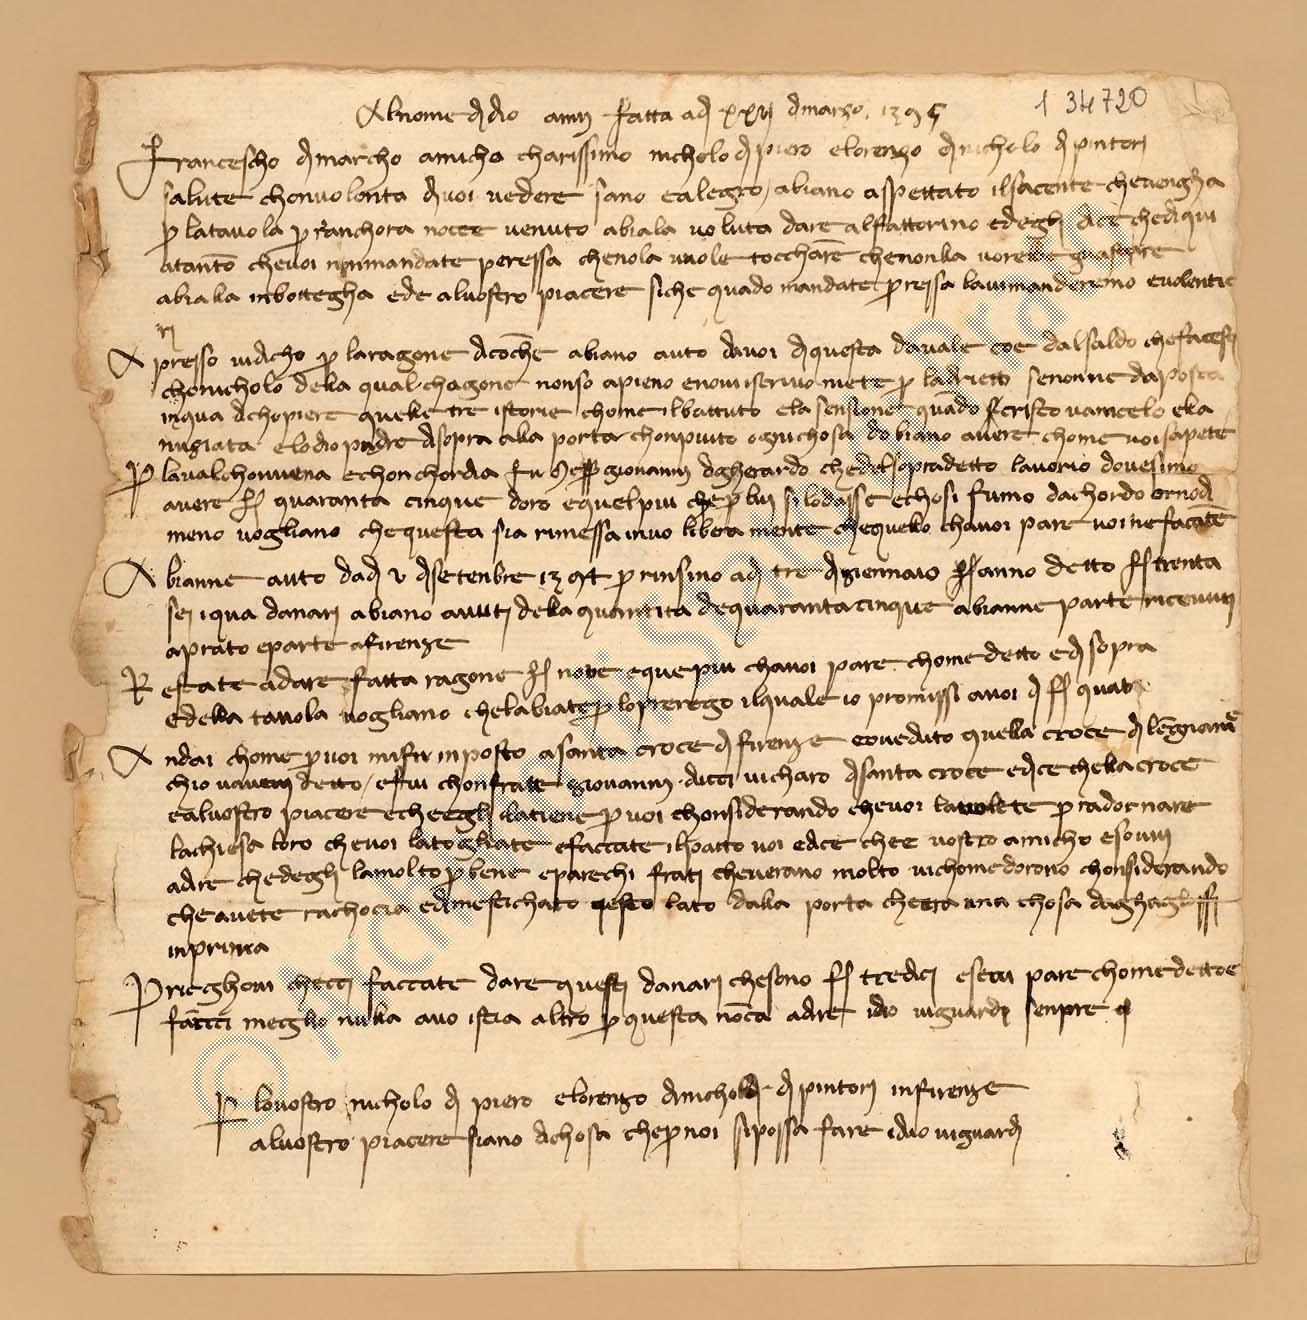 Al nome di dio amen fatta adj xxvj dmarzo 1395
1 34720
Francescho dimarcho amicho charissimo nicholo dj piero elorenzo dj nicholo dipintorj
salute chonvolonta divoi vedere sano ealegro, abiano aspettato ilsacente chevengha
p latavola p anchora nonee venuto abiala voluta dare alfattorino edeglj dice chediqui
atanto chevoi nonmandate peressa chenola vuole tocchare chenonlla vorebe guastare
abialla inbottegha ede alvostro piacere siche quado mandate pressa lavimanderemo evolentie
rj
A presso vidicho p laragone dicoche abiano auto davoi diquesta davale coe dalsaldo chefacesti
chonicholo della qual chagone nonso apieno enoviiscrivo niete p ladrietto senonne daposta
inqua dichopiere quelle tre istorie chome ilbattuto ela sensione quado xpisto vaincelo ella
nuziata elodio padre disopra alla porta chonpiuto ognichosa dobiano avere chome voi sapete
P lavalchonvena echonchordia fu ser giovannj digherardo chedelsopradetto lavorio dovesimo
avere fj quaranta cinque doro equelpiu chep luj silodasse echosi fumo dachordo ornodi
meno vogliano chequesta sia rimessa invo libera mente chequello chavoi pare voinefacate
A bianne auto dadj v disetenbre 1394 p rinsino adj tre digiennaio anno detto fj trenta
sej iqua danarj abiano avutj della quantita dequarantacinque abianne parte ricevutj
aprato eparte afirenze
R estate adare fatta ragone fj nove equepiu chavoi pare chome detto edj sopra
edella tavola vogliano chelabiate p lopreregio ilquale io promissi avoi dj fj quatro
A ndai chome pvoi mifu inposto asanta croce dj firenze eoveduto quella croce dj legname
chio vavevj detto, efui chonfratte giovannj ducci vicharo disanta croce edice chella croce
ealvostro piacere echeeglj latiene pvoi chonsiderando chevoi lavolete p radornare
lachiesa loro chevoi latogliate efacciate ilpatto voi edice chee vostro amicho esovvi
adire chedeglj lamolto pbene eparechi fratj cheverano molto vichomedorono chonsiderando
cheavete rachocia edimesichato questo lato dalla porta chera una chosa
inprima
Prieghovi checci facciate dare questj danarj chesono fj tredicj esecci pare chome dettoe
faccci meglio nulla avo iscia altro pquesta noca adire idio viguardj senpre

P lovostro nicholo dj piero elorenzo dinicholo dipintorj infirenze
alvostro piacere siano dichosa chepnoi sipossa fare idio viguardj